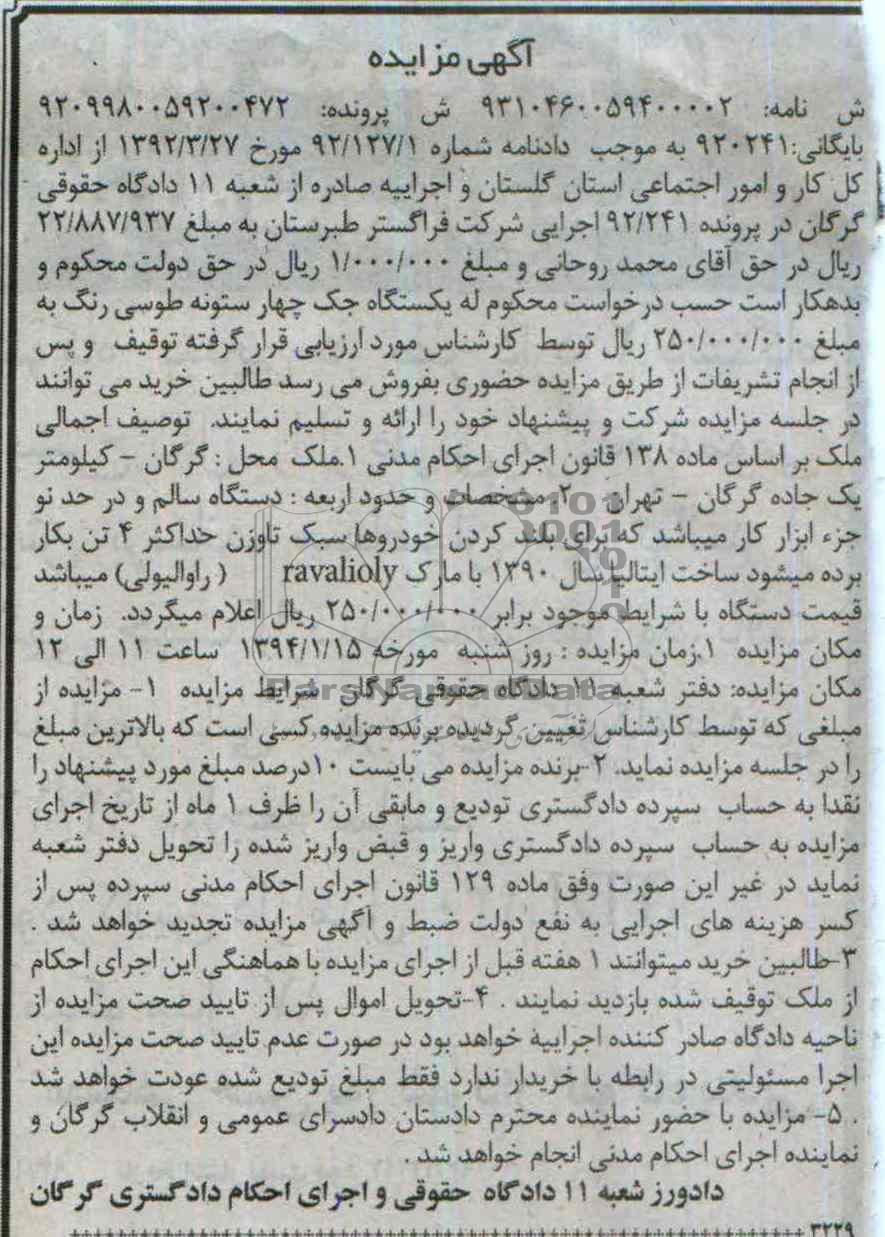 آگهی مزایده
ش نامه: ۹۳۱۰۴۶۰۰۵۹۴۰۰۰۰۲ ش پرونده: ۹۲۰۹۹۸۰۰۵۹۲۰۰۴۷۲
بایگانی:۹۲۰۲۴۱ به موجب دادنامه شماره ۹۲/۱۲۷/۱ مورخ ۱۳۹۲/۳/۲۷ از اداره
کل کار و امور اجتماعی استان گلستان و اجراییه صادره از شعبه ۱۱ دادگاه حقوقی
گرگان در پرونده ۹۲/۲۴۱ اجرایی شرکت فراگستر طبرستان به مبلغ ۲۲/۸۸۷/۹۳۷
ریال در حق آقای محمد روحانی و مبلغ ۱/۰۰۰/۰۰۰ ریال در حق دولت محکوم و
بدهکار است حسب درخواست محکوم له یکستگاه جک چهار ستونه طوسی رنگ به
مبلغ ۲۵۰/۰۰۰/۰۰۰ ریال توسط کارشناس مورد ارزیابی قرار گرفته توقیف و پس
از انجام تشریفات از طریق مزایده حضوری بفروش می رسد طالبین خرید می توانند
در جلسه مزایده شرکت و پیشنهاد خود را ارائه و تسلیم نمایند. توصیف اجمالی
ملک بر اساس ماده ۱۳۸ قانون اجرای احکام مدنی ۱.ملک محل : گرگان – کیلومتر
یک جاده گرگان – تهران- ۲. مشخصات و حدود اربعه : دستگاه سالم و در حد نو
جزء ابزار کار میباشد که برای بلند کردن خودروها سبک تاوزن حداکثر ۴ تن بکار
برده میشود ساخت ایتالیا سال ۱۳۹۰ با مارک ravalioly ( راوالیولی) میباشد
قیمت دستگاه با شرایط موجود برابر ۲۵۰/۰۰۰/۰۰۰ ریال اعلام میگردد. زمان و
مکان مزایده ۱.زمان مزایده : روز شنبه مورخه ۱۳۹۴/۱/۱۵ ساعت ۱۱ الی ۱۲
مکان مزایده: دفتر شعبه ۱۱ دادگاه حقوقی گرگان شرایط مزایده ۱- مزایده از
مبلغی که توسط کارشناس تعیین گردیده برنده مزایده کسی است که بالاترین مبلغ
را در جلسه مزایده نماید. ۲-برنده مزایده می بایست ۱۰درصد مبلغ مورد پیشنهاد را
نقدا به حساب سپرده دادگستری تودیع و مابقی آن را ظرف ۱ ماه از تاریخ اجرای
مزایده به حساب سپرده دادگستری واریز و قبض واریز شده را تحویل دفتر شعبه
نماید در غیر این صورت وفق ماده ۱۲۹ قانون اجرای احکام مدنی سپرده پس از
کسر هزینه های اجرایی به نفع دولت ضبط و آگهی مزایده تجدید خواهد شد .
۳-طالبین خرید میتوانند ۱ هفته قبل از اجرای مزایده با هماهنگی این اجرای احکام
از ملک توقیف شده بازدید نمایند . ۴-تحویل اموال پس از تایید صحت مزایده از
ناحیه دادگاه صادر کننده اجراییه خواهد بود در صورت عدم تایید صحت مزایده این
اجرا مسئولیتی در رابطه با خریدار ندارد فقط مبلغ تودیع شده عودت خواهد شد
. ۵- مزایده با حضور نماینده محترم دادستان دادسرای عمومی و انقلاب گرگان و
نماینده اجرای احکام مدنی انجام خواهد شد .
دادورز شعبه ۱۱ دادگاه حقوقی و اجرای احکام دادگستری گرگان
۳۲۲۹
ParsNamadData